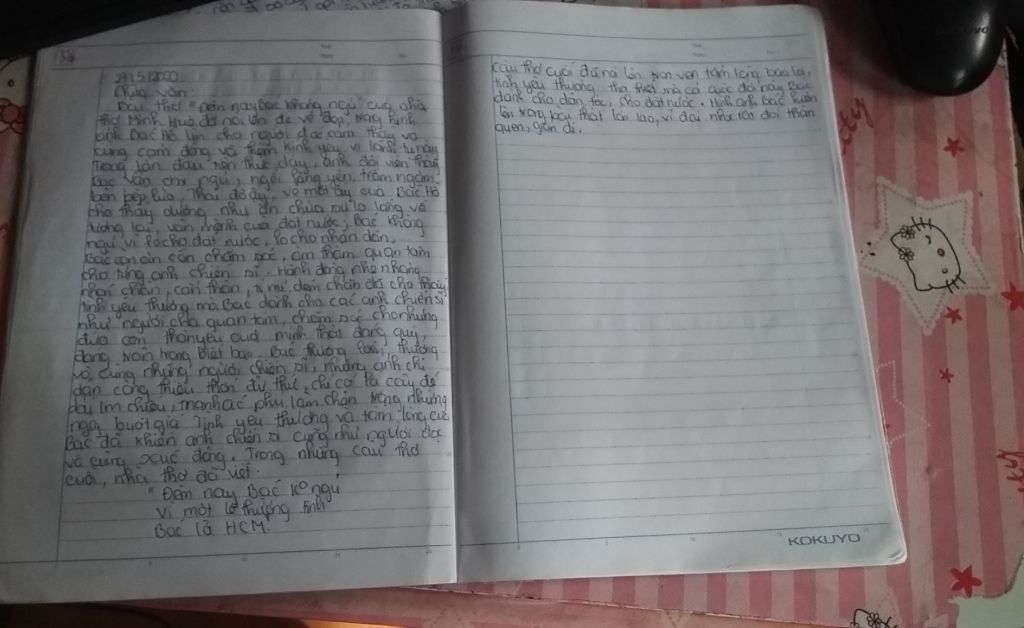 Chữa văn:
Bài thơ "Đêm nay Bác không ngủ" của nhà
thơ Minh Huệ đã nói lên đc vẻ đẹp trong hình
ảnh Bác Hồ làm cho người đọc cảm thấy vô
cùng cảm động và thêm kính yêu vị lãnh tụ này
Trong lần đầu tiên thức dậy, anh đội viên thấy
Bác vẫn chx ngủ, ngồi lặng yên, trầm ngâm
bên bếp lửa. Thái độ ấy, vẻ mặt ấy của Bác Hồ
cho thấy dường như ẩn chứa sự lo lắng về
tương lai, vận mệnh của đất nước, Bác không
ngủ vì lo cho đất nước, lo cho nhân dân.
Bác còn ân cần chăm sóc, âm thầm quan tâm
cho từng anh chiến sĩ. Hành động nhẹ nhàng
nhón chân, cẩn thận, tỉ mỉ dém chăn đã cho thấy
tình yêu thương mà Bác dành cho các anh chiến sĩ
như người cha quan tâm, chăm sóc cho những
đứa con thân yêu của mình thật đáng quý,
đáng trân trọng biết bao. Bác thương lắm, thương
vô cùng những người chiến sĩ, những anh chị
dân công thiếu thốn đủ thứ, chỉ có lá cây để
dải làm chiếu, manh áo phủ làm chăn trong những
ngày buốt giá. Tình yêu thương và tấm lòng của
Bác đã khiến anh chiến sĩ cũng như người đọc
vô cùng xúc động. Trong những câu thơ
cuối, nhà thơ đã viết:
"Đêm nay Bác ko ngủ
Vì một lẽ thường tình
Bác là HCM.
Câu thơ cuối đã nói lên trọn vẹn tấm lòng bao la,
tình yêu thương tha thiết mà cả cuộc đời này Bác
dành cho dân tộc, cho đất nước. Hình ảnh Bác hiện
lên trong bài thật lớn lao, vĩ đại nhx rất đỗi thân
quen, giản dị.
KOKUYO